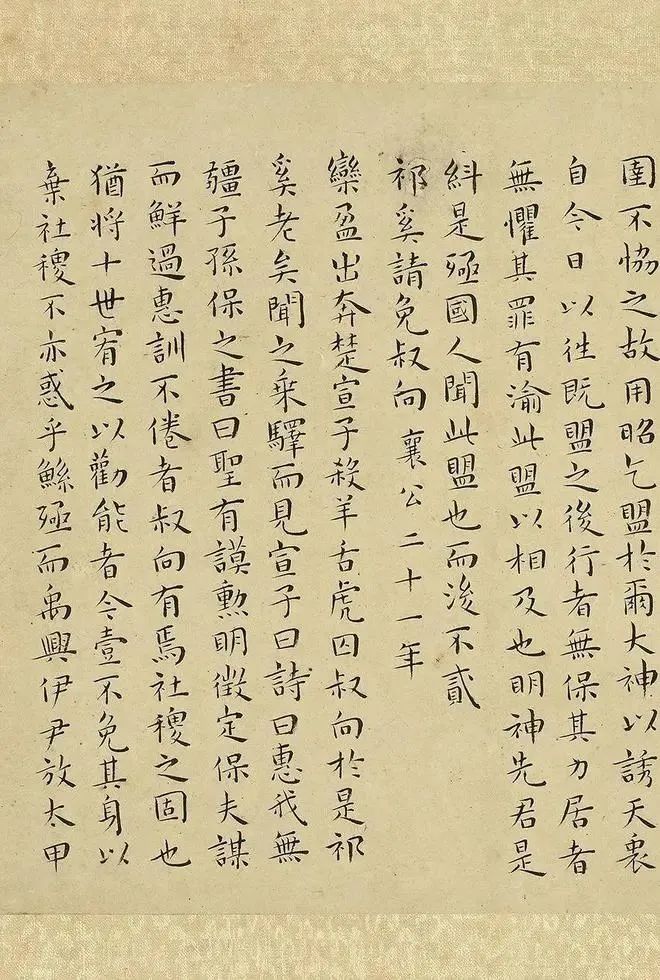 圉不恊之故用昭乞盟於爾大神以誘天衷
自今日以往既盟之後行者無保其力居者
無懼其罪有渝此盟以相及也明神先君是
糾是殛國人聞此盟也而後不貳
祁奚請免叔向 襄公二十一年
欒盈出奔楚宣子殺羊舌虎囚叔向於是祁
奚老矣聞之乗驛而見宣子曰詩曰惠我無
疆子孫保之書曰聖有謨勲明徵定保夫謀
而鮮過惠訓不倦者叔向有焉社稷之固也
猶将十世宥之以勸能者今壹不免其身以
棄社稷不亦惑乎鯀殛而禹興伊尹放太甲